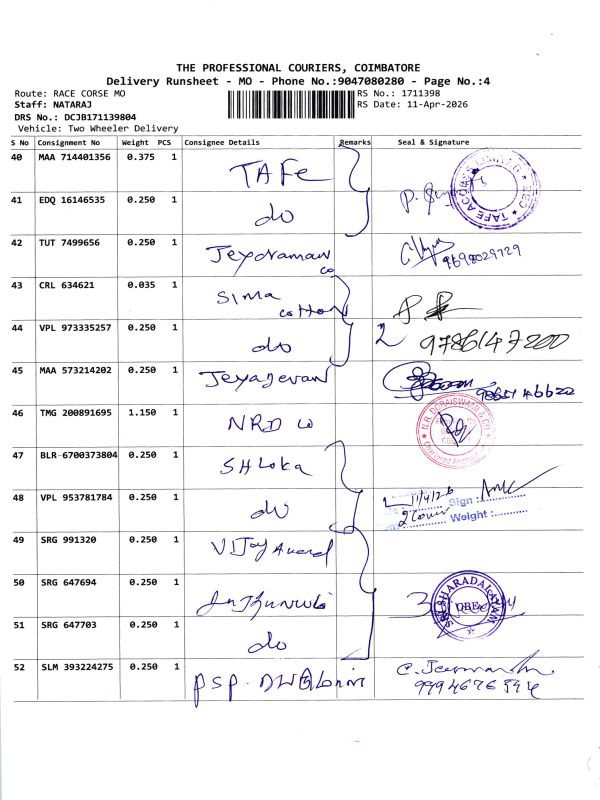 THE PROFESSIONAL COURIERS, COIMBATORE
Delivery Runsheet - MO - Phone No.:9047080280 - Page No.:4
Route: RACE CORSE MO RS No.: 1711398
Staff: NATARAJ RS Date: 11-Apr-2026
DRS No.: DCJB171139804
Vehicle: Two Wheeler Delivery
S No Consignment No Weight PCS Consignee Details Remarks Seal & Signature
40 MAA 714401356 0.375 1 TAFE
41 EDQ 16146535 0.250 1 do
42 TUT 7499656 0.250 1 Jeyaraman co 9698029729
43 CRL 634621 0.035 1 Sima cotton
44 VPL 973335257 0.250 1 do 2
45 MAA 573214202 0.250 1 Jeyadevan
46 TMG 200891695 1.150 1 NRD co
47 BLR-6700373804 0.250 1 SHLoka
48 VPL 953781784 0.250 1 do 11/4/26 Sign : Weight :
49 SRG 991320 0.250 1 VIJay Anand
50 SRG 647694 0.250 1 3
51 SRG 647703 0.250 1 do
52 SLM 393224275 0.250 1 PSP.